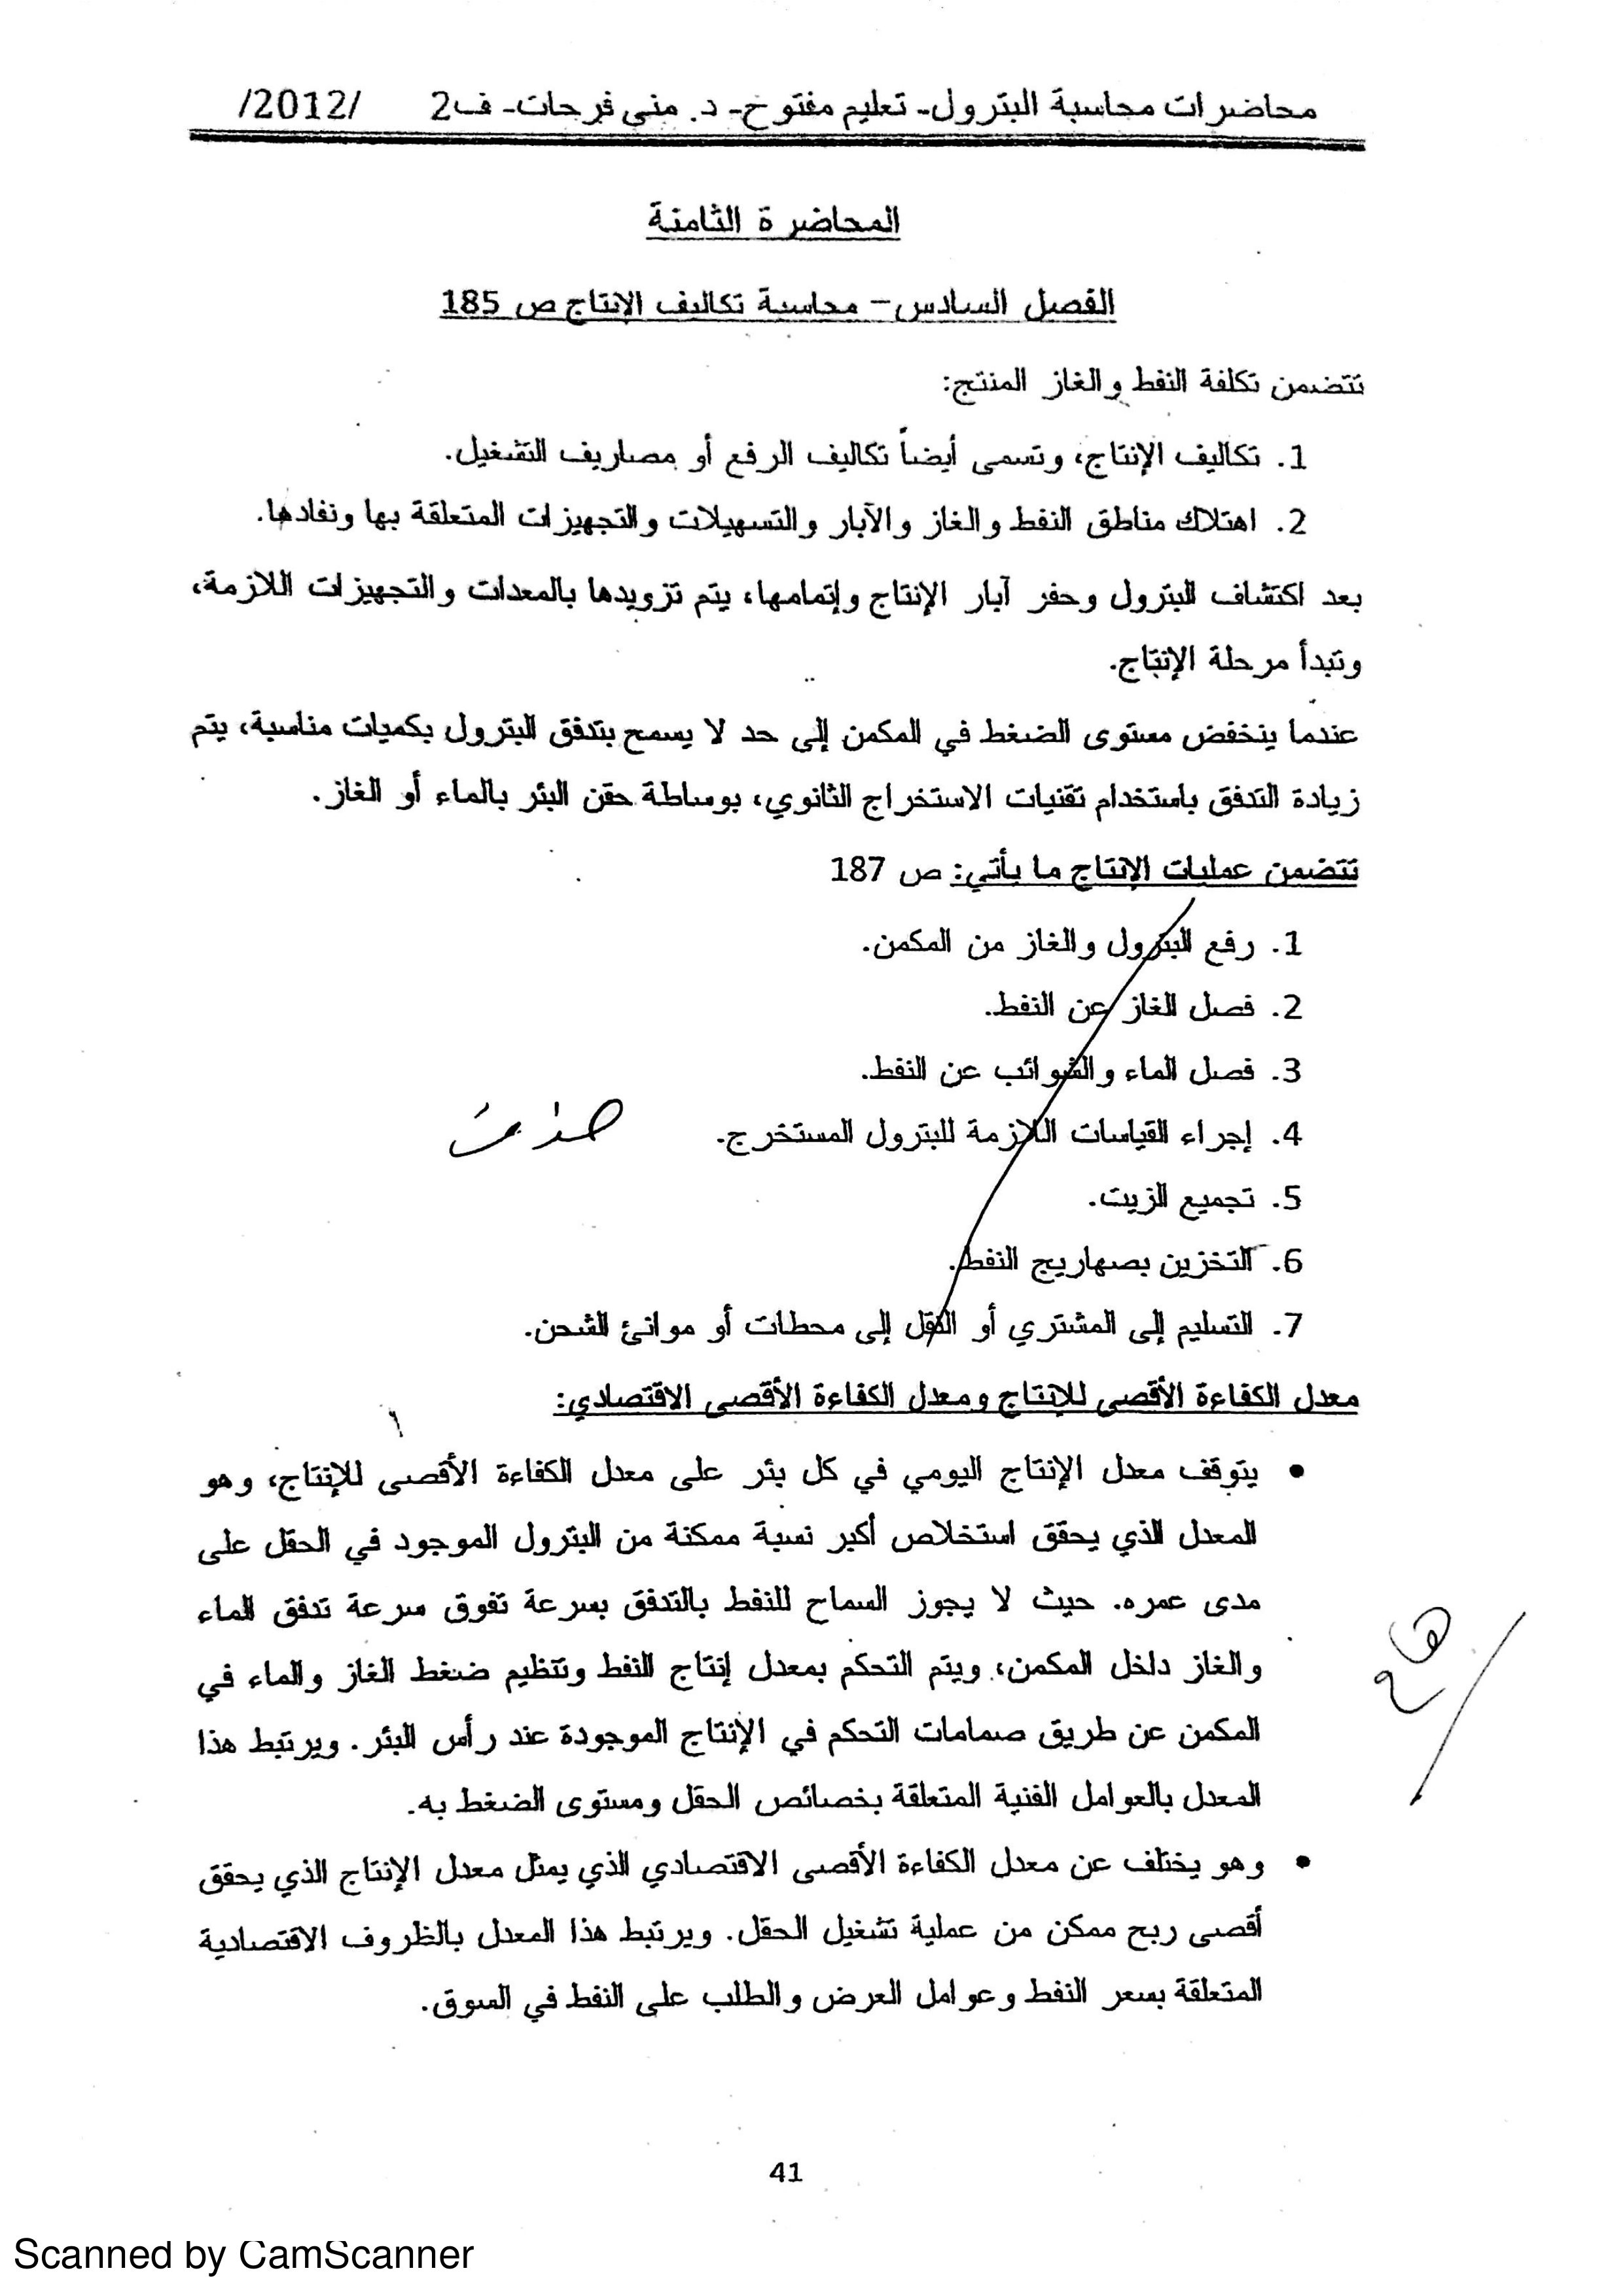 محاضرات محاسبة البترول- تعليم مفتوح- د. منى فرحات- ف2 /2012/
المحاضرة الثامنة
الفصل السادس – محاسبة تكاليف الإنتاج ص 185
تتضمن تكلفة النفط والغاز المنتج:
1. تكاليف الإنتاج، وتسمى أيضاً تكاليف الرفع أو مصاريف التشغيل.
2. اهتلاك مناطق النفط والغاز والآبار والتسهيلات والتجهيزات المتعلقة بها ونفادها.
بعد اكتشاف البترول وحفر آبار الإنتاج وإتمامها، يتم تزويدها بالمعدات والتجهيزات اللازمة،
وتبدأ مرحلة الإنتاج.
عندما ينخفض مستوى الضغط في المكمن إلى حد لا يسمح بتدفق البترول بكميات مناسبة، يتم
زيادة التدفق باستخدام تقنيات الاستخراج الثانوي، بوساطة حقن البئر بالماء أو الغاز.
تتضمن عمليات الإنتاج ما يأتي: ص 187
1. رفع البترول والغاز من المكمن.
2. فصل الغاز عن النفط.
3. فصل الماء والشوائب عن النفط.
4. إجراء القياسات اللازمة للبترول المستخرج.
5. تجميع الزيت.
6. التخزين بصهاريج النفط.
7. التسليم إلى المشتري أو النقل إلى محطات أو موانئ الشحن.
معدل الكفاءة الأقصى للإنتاج ومعدل الكفاءة الأقصى الاقتصادي:
• يتوقف معدل الإنتاج اليومي في كل بئر على معدل الكفاءة الأقصى للإنتاج، وهو
المعدل الذي يحقق استخلاص أكبر نسبة ممكنة من البترول الموجود في الحقل على
مدى عمره. حيث لا يجوز السماح للنفط بالتدفق بسرعة تفوق سرعة تدفق الماء
والغاز داخل المكمن، ويتم التحكم بمعدل إنتاج النفط وتنظيم ضغط الغاز والماء في
المكمن عن طريق صمامات التحكم في الإنتاج الموجودة عند رأس البئر. ويرتبط هذا
المعدل بالعوامل الفنية المتعلقة بخصائص الحقل ومستوى الضغط به.
• وهو يختلف عن معدل الكفاءة الأقصى الاقتصادي الذي يمثل معدل الإنتاج الذي يحقق
أقصى ربح ممكن من عملية تشغيل الحقل. ويرتبط هذا المعدل بالظروف الاقتصادية
المتعلقة بسعر النفط وعوامل العرض والطلب على النفط في السوق.
هام
41
Scanned by CamScanner